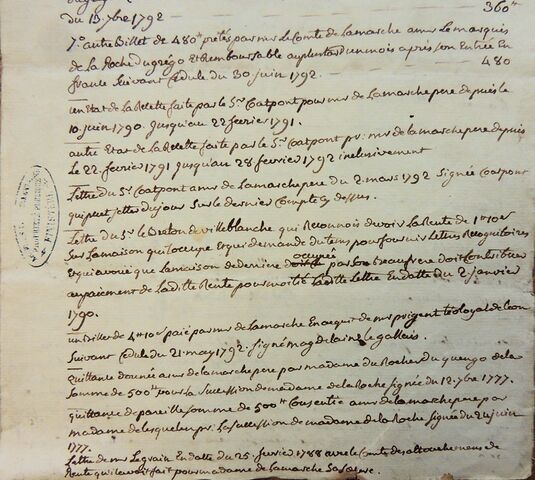 du 13 7bre 1792
360tt
7o autre Billet de 480tt pretés par mr Le Comte de Lamarche a mr Le marquis
de la Roche du grégo et Remboursable au plutard un mois après son Entrée En
france Suivant Cédule du 30 juin 1792.
480
un Etat de La Recette faite par le Sr Coatpont pour mr de Lamarche pere depuis le
10. juin 1790. jusqu'au 22 fevrier 1791.
autre Etat de La Recette faite par le Sr Coatpont pr. mr de lamarche pere depuis
Le 22 fevrier 1791 jusqu'au 28 fevrier 1792 inclusivement
Lettre du Sr Coatpont a mr de Lamarche pere du 2. mars 1792 Signée Coatpont
qui peut jetter du jour Sur le dernier Compte cy dessus.
Lettre du Sr le Breton de villeblanche qui Reconnois devoir La Rente de 1tt 10s
Sur La maison qu'il occupe Et qui demande du tems pour fournir Lettres Recognitoires
Et qui avoue que La maison de derriere occupée par Son beaufrere doit Contribuer
au paiement de Laditte Rente pour moitié Laditte Lettre En datte du 2 janvier
1790.
un Billet de 4tt 10s paié par mr de Lamarche En acquit de mr prigent
Suivant Cédule du 21. may 1792. Signé magdelaine Le gallais.
quittance donnée a mr de lamarche pere par madame du Rocher du quengo de la
Somme de 500tt pour La Succession de madame de la Roche Signée du 12. 7bre 1777.
quittance de pareille Somme de 500tt Consentie a mr de lamarche pere par
madame de Lesquelen pr. La Succession de madame de la Roche Signée du 24 juin
1777.
Lettre de mr Legrain En datte du 25. fevrier 1788 avec le Comte des attouchemens de
Rente qu'il avoit fait pour madame de Lamarche Sa Soeur.